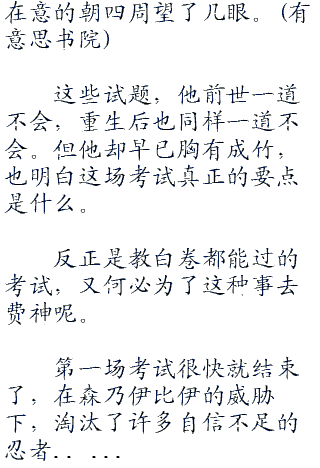 在意的朝四周望了几眼。(有
意思书院)
这些试题，他前世一道
不会，重生后也同样一道不
会。但他却早已胸有成竹，
也明白这场考试真正的要点
是什么。
反正是教白卷都能过的
考试，又何必为了这种事去
费神呢。
第一场考试很快就结束
了，在森乃伊比伊的威胁
下，淘汰了许多自信不足的
忍者．．．．．